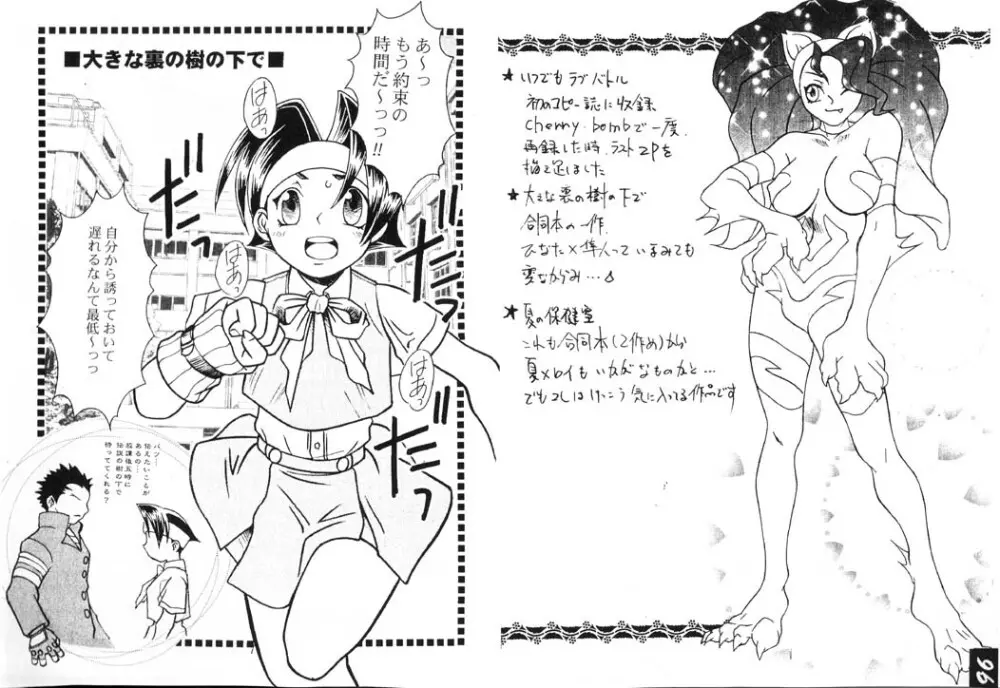 ■大きな裏の樹の下で■
あ~っ
もう約束の
時間だ~っっ!!
はあっ
はあっ
はあっ
はあっ
だっ
だっ
自分から誘っておいて
遅れるなんて最低~っっ
バツ…
伝えたいことが
あるの…
放課後五時に
伝説の樹の下で
待っててくれる?
★いつでもラブバトル
初のコピー誌に収録
cherry・bombで一度、
再録した時、ラスト2Pを
描き足しました
★大きな裏の樹の下で
合同本の一作。
ひなた×隼人っているみても
変ながらみ…
★夏の保健室
これも合同本(2作め)から
夏×ロイもいかがなものかと…
でもコレはけっこう気に入ってる作品です
96